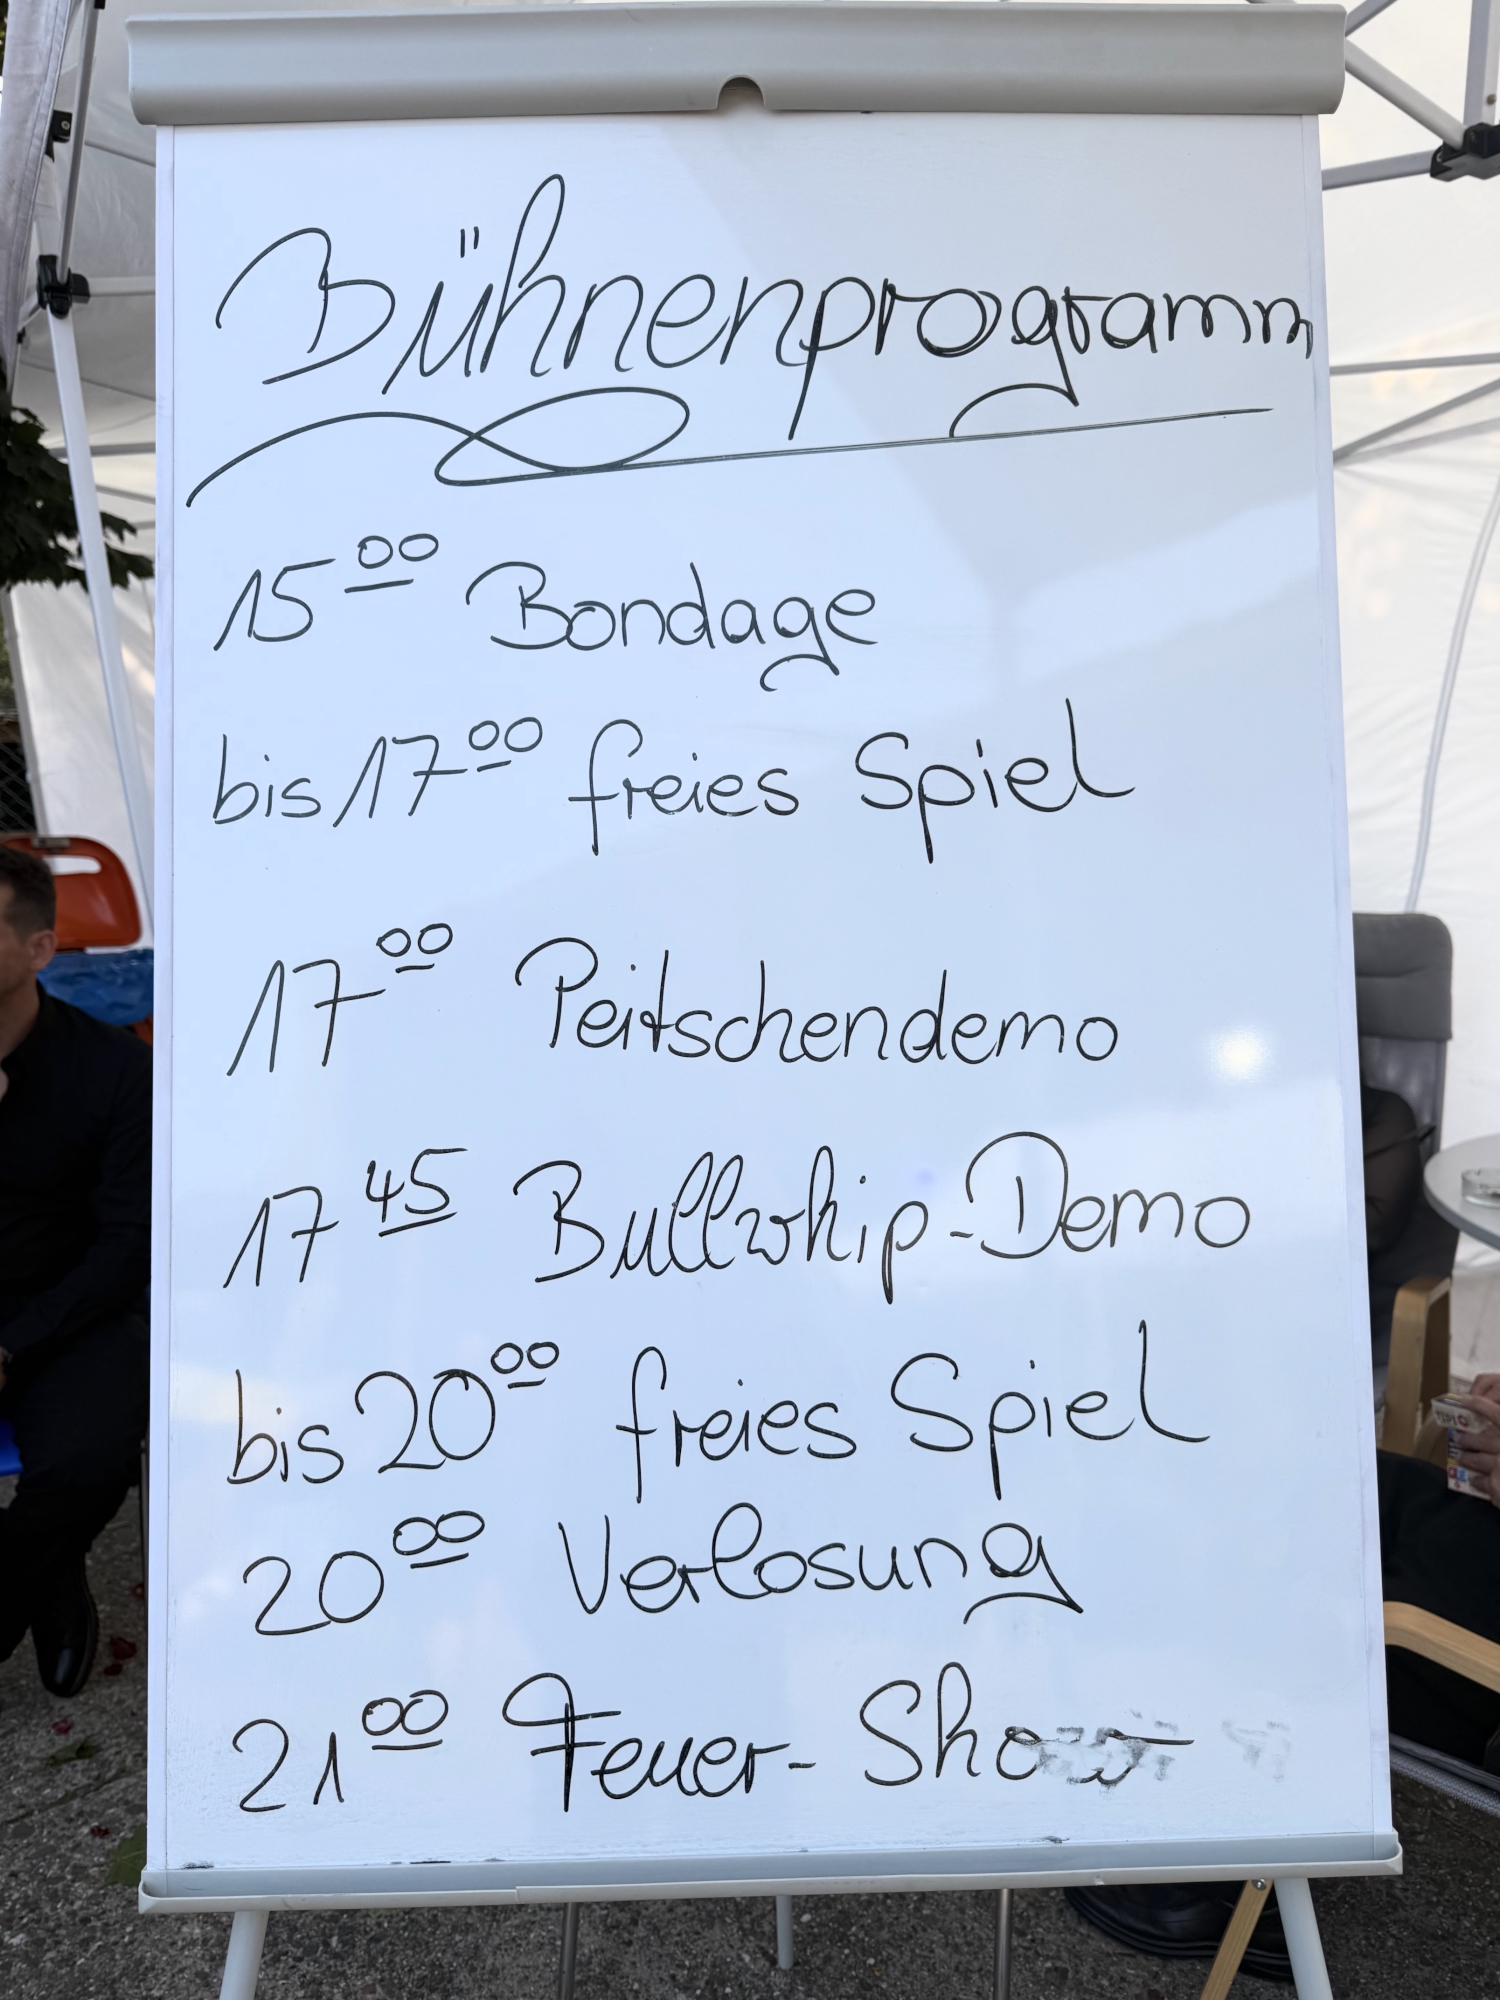 Bühnenprogramm
15⁰⁰ Bondage
bis 17⁰⁰ freies Spiel
17⁰⁰ Peitschendemo
17⁴⁵ Bullwhip-Demo
bis 20⁰⁰ freies Spiel
20⁰⁰ Verlosung
21⁰⁰ Feuer-Show